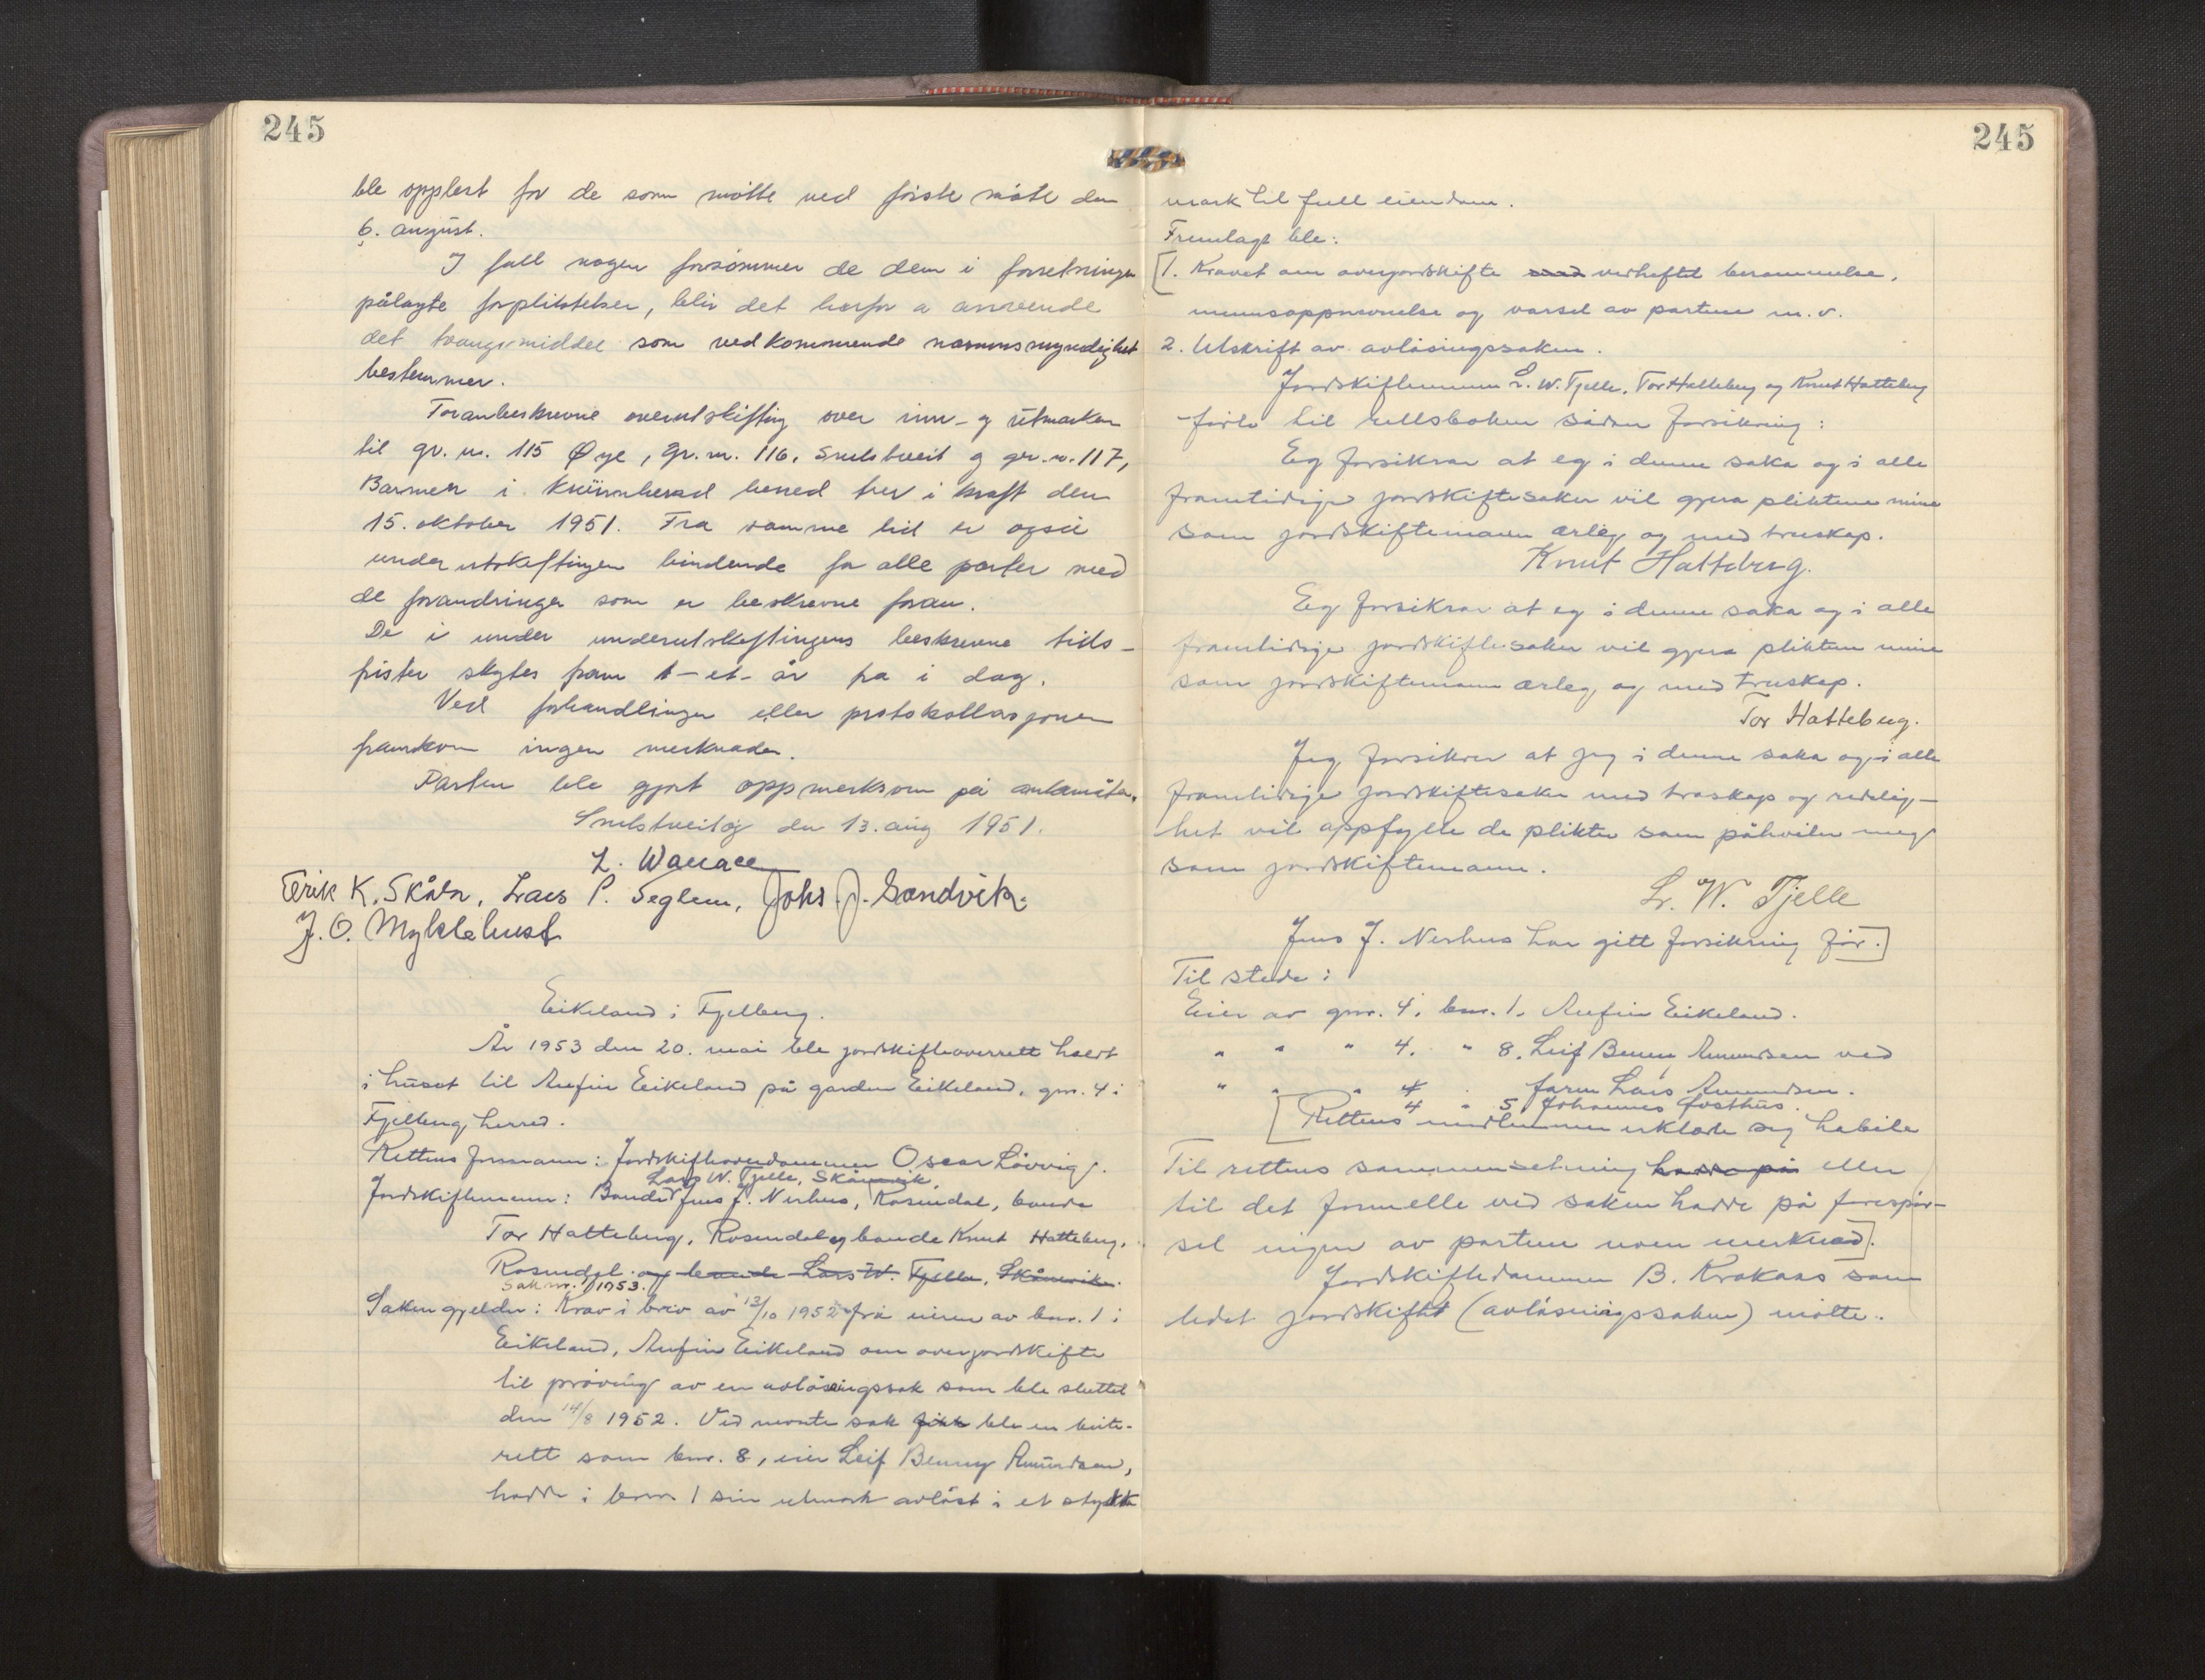 245
ble opplest for de som møtte ved første møte den
6. august.
I fall nogen forsømmer de dem i forretningen
pålagte forpliktelser, blir det herfor å anvende
det tvangsmiddel som vedkommende namnsmyndighet
bestemmer.
Foranbeskrevne overutskifting over inn- og utmarken
til gr. nr. 115 Øye, gr. nr. 116, Snilstveit og gr. nr. 117,
Barmen i Kvinnherad herred trer i kraft den
15. oktober 1951. Fra samme tid er også
underutskiftingen bindende for alle parter med
de forandringer som er beskrevne foran.
De i under underutskiftingens beskrevne tids-
frister skytes fram 1 - et - år fra i dag.
Ved forhandlinger eller protokollasjonen
framkom ingen merknader.
Parten ble gjort oppmerksom på ankemåten.
Snilstveitøy den 13. aug 1951.
L. Wallace
Erik K. Skåla, Lars P. Seglem, Johs. J. Sandvik.
J. O. Myklebust
Eikeland i Fjelberg.
År 1953 den 20. mai ble jordskifteoverrett holdt
i huset til Anfin Eikeland på garden Eikeland, gnr. 4 i
Fjelberg herred.
Rettens formann: Jordskifteoverdommer Oscar Løvvig.
Lars W. Tjelle, Skånevik,
Jordskiftemenn: Bonde Jens J. Nerhus, Rosendal, bonde
Tor Hatteberg, Rosendal og bonde Knut Hatteberg,
Rosendal. og bonde Lars W. Tjelle, Skånevik.
Sak nr. 1/1953.
Saken gjelder: Krav i brev av 13/10 1952 frå eieren av bnr. 1 i
Eikeland, Anfin Eikeland om overjordskifte
til prøving av en avløsingssak som ble sluttet
den 14/8 1952. Ved nevnte sak fikk ble en beite-
rett som bnr. 8, eier Leif Benny Amundsen,
hadde i bnr. 1 sin utmark avløst i et stykke
245
mark til full eiendom.
Fremlagt ble:
[1. Kravet om overjordskifte med vedheftet berammelse,
mennsoppnevnelse og varsel av partene m.v.
2. Utskrift av avløsingssaken.
Jordskiftemennene L. W. Tjelle, Tor Hatteberg og Knut Hatteberg
førte til rettsboken sådan forsikring:
Eg forsikrar at eg i denne saka og i alle
framtidige jordskiftesaker vil gjera pliktene mine
som jordskiftemann ærleg og med truskap.
Knut Hatteberg.
Eg forsikrar at eg i denne saka og i alle
framtidige jordskiftesaker vil gjera pliktene mine
som jordskiftemann ærleg og med truskap.
Tor Hatteberg.
Jeg forsikrer at jeg i denne saka og i alle
framtidige jordskiftesaker med troskap og redelig-
het vil oppfylle de plikter som påhviler meg
som jordskiftemann.
Lr. W. Tjelle
Jens J. Nerhus har gitt forsikring før.]
Til stede:
Eier av gnr. 4, bnr. 1, Anfin Eikeland.
" " " 4. " 8. Leif Benny Amundsen ved
" " " 4 faren Lars Amundsen.
4 " 5 Johannes Gosthus.
[Rettens medlemmer erklærte seg habile
Til rettens sammensetning hadde på eller
til det formelle ved saken hadde på forespør-
sel ingen av partene noen merknad].
Jordskiftedommer B. Krakaas som
ledet jordskiftet (avløsningssaken) møtte.